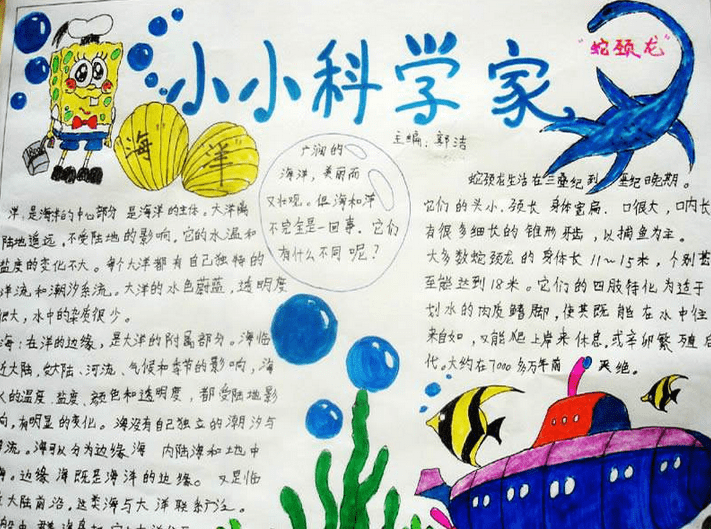 小小科学家
主编：郭洁
"蛇颈龙"
"海"
洋"
广阔的
海洋，美丽而
又壮观。但海和洋
不完全是一回事。它们
有什么不同呢？
洋：是海洋的中心部分 是海洋的主体。大洋离
陆地遥远，不受陆地的影响。它的水温和
盐度的变化不大。每个大洋都有自己独特的
洋流和潮汐系流。大洋的水色蔚蓝，透明度
很大，水中的杂质很少。
海：在洋的边缘，是大洋的附属部分。海临
近大陆，受大陆、河流、气候和季节的影响，海
水的温度、盐度、颜色和透明度，都受陆地影
响，有明显的变化。海没有自己独立的潮汐与
海流。海可以分为边缘海 内陆海和地中
海。边缘海既是海洋的边缘。又是临
近大陆前沿。这类海与大洋联系广泛。
蛇颈龙生活在三叠纪到 垩纪晚期。
它们的头小、颈长 身体宽扁、口很大，口内长
有很多细长的锥形牙齿，以捕鱼为主。
大多数蛇颈龙的身体长11~15米，个别甚
至能达到18米。它们的四肢特化为适于
划水的肉质鳍脚，使其既能在水中往
来自如，又能爬上岸来休息，或辛卵繁殖后
代。大约在7000多万年前 灭绝。